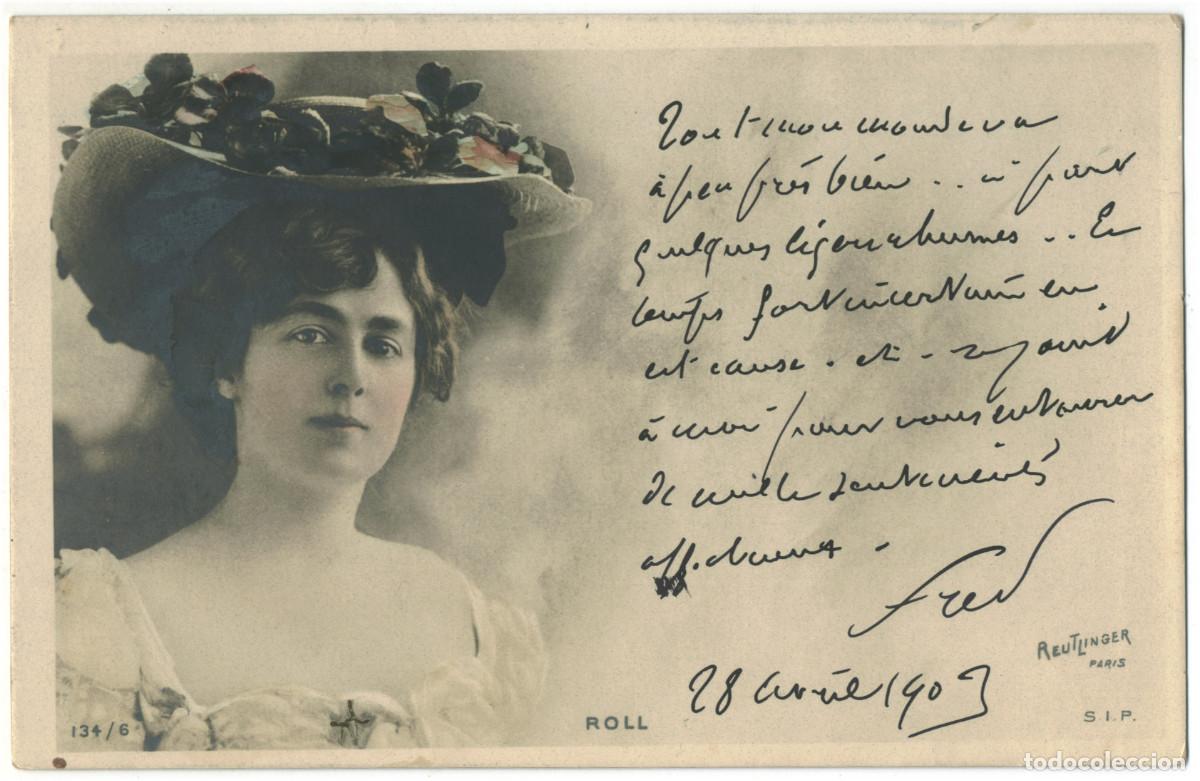 Tout mon monde va
à peu près bien .. à part
quelques légers rhumes .. Le
temps fort incertain en
est cause . et - se joint
à moi pour vous entourer
de mille sentiments
affectueux -
Fred
28 avril 1903
REUTLINGER
PARIS
134/6
ROLL
S.I.P.
todocoleccion